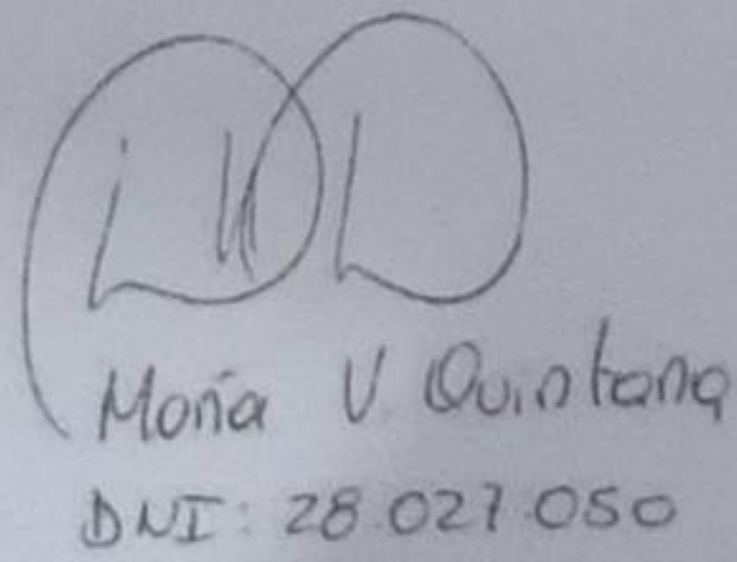 María V. Quintana
DNI: 28.027.050